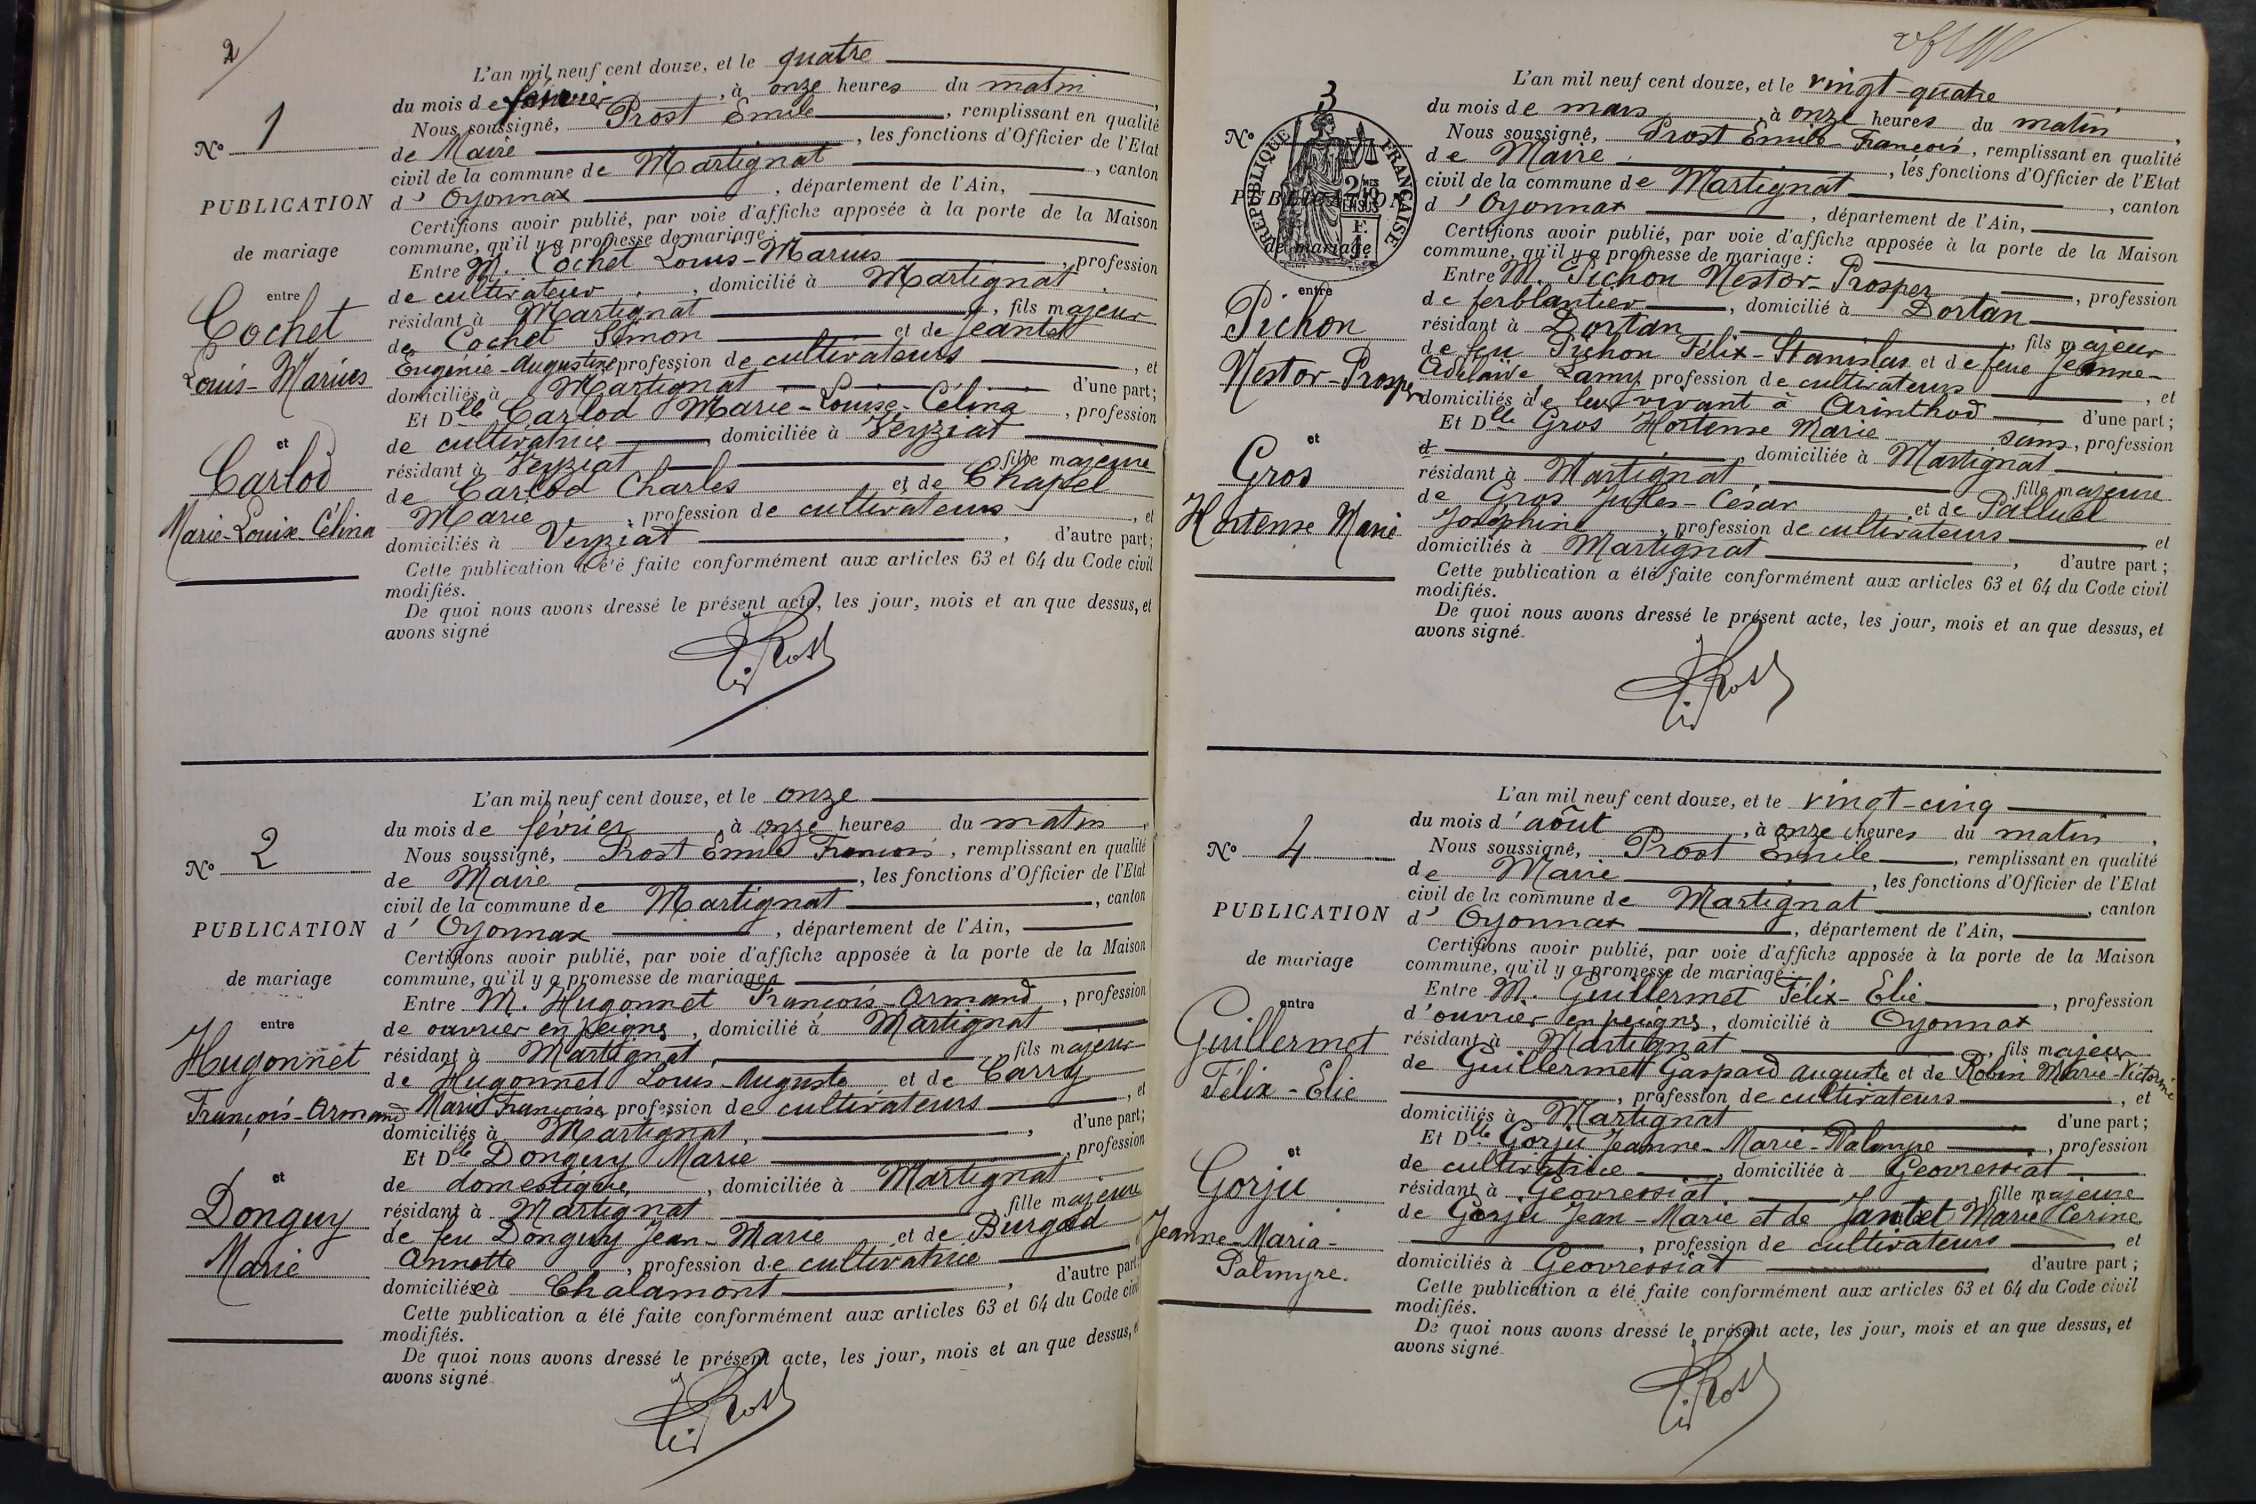 2
L'an mil neuf cent douze, et le quatre
du mois de février, à onze heures du matin,
Nous soussigné, Prost Emile, remplissant en qualité
de Maire, les fonctions d'Officier de l'Etat
civil de la commune de Martignat, canton
d'Oyonnax, département de l'Ain,
Certifions avoir publié, par voie d'affiche apposée à la porte de la Maison
commune, qu'il y a promesse de mariage :
Entre M. Cochet Louis-Marius, profession
de cultivateur, domicilié à Martignat,
résidant à Martignat, fils majeur
de Cochet Simon et de Jeantet
Eugénie-Augustine profession de cultivateurs, et
domiciliés à Martignat d'une part ;
Et Dlle Carlod Marie-Louise-Célina, profession
de cultivatrice, domiciliée à Veyziat
résidant à Veyziat, fille majeure
de Carlod Charles et de Chapel
Marie, profession de cultivateurs, et
domiciliés à Veyziat, d'autre part ;
Cette publication a été faite conformément aux articles 63 et 64 du Code civil
modifiés.
De quoi nous avons dressé le présent acte, les jour, mois et an que dessus, et
avons signé
E. Prost
No 1
PUBLICATION
de mariage
entre
Cochet
Louis-Marius
et
Carlod
Marie-Louise Célina
L'an mil neuf cent douze, et le onze
du mois de février, à onze heures du matin,
Nous soussigné, Prost Emile François, remplissant en qualité
de Maire, les fonctions d'Officier de l'Etat
civil de la commune de Martignat, canton
d'Oyonnax, département de l'Ain,
Certifions avoir publié, par voie d'affiche apposée à la porte de la Maison
commune, qu'il y a promesse de mariage :
Entre M. Hugonnet François-Armand, profession
de ouvrier en peignes, domicilié à Martignat
résidant à Martignat, fils majeur
de Hugonnet Louis-Auguste et de Carry
Marie Françoise profession de cultivateurs, et
domiciliés à Martignat, d'une part ;
Et Dlle Donguy Marie, profession
de domestique, domiciliée à Martignat
résidant à Martignat fille majeure
de feu Donguy Jean-Marie et de Burgod
Annette, profession de cultivatrice
domiciliée à Chalamont, d'autre part
Cette publication a été faite conformément aux articles 63 et 64 du Code civil
modifiés.
De quoi nous avons dressé le présent acte, les jour, mois et an que dessus, et
avons signé
E. Prost
No 2
PUBLICATION
de mariage
entre
Hugonnet
François-Armand
et
Donguy
Marie
L'an mil neuf cent douze, et le vingt-quatre
du mois de mars à onze heures du matin,
Nous soussigné, Prost Emile-François, remplissant en qualité
de Maire, les fonctions d'Officier de l'Etat
civil de la commune de Martignat, canton
d'Oyonnax, département de l'Ain,
Certifions avoir publié, par voie d'affiche apposée à la porte de la Maison
commune, qu'il y a promesse de mariage :
Entre M. Pichon Nestor-Prosper, profession
de ferblantier, domicilié à Dortan
résidant à Dortan, fils majeur
de feu Pichon Félix-Stanislas et de feue Jeanne-
Adélaïde Lamy profession de cultivateurs, et
domiciliés de leur vivant à Arinthod d'une part ;
Et Dlle Gros Hortense Marie sans, profession
d, domiciliée à Martignat
résidant à Martignat, fille majeure
de Gros Jules-César et de Palluel
Joséphine, profession de cultivateurs et
domiciliés à Martignat, d'autre part ;
Cette publication a été faite conformément aux articles 63 et 64 du Code civil
modifiés.
De quoi nous avons dressé le présent acte, les jour, mois et an que dessus, et
avons signé
E. Prost
No 3
RÉPUBLIQUE FRANÇAISE
PUBLICATION
de mariage
entre
Pichon
Nestor-Prosper
et
Gros
Hortense Marie
L'an mil neuf cent douze, et le vingt-cinq
du mois d'août, à onze heures du matin,
Nous soussigné, Prost Emile, remplissant en qualité
de Maire, les fonctions d'Officier de l'Etat
civil de la commune de Martignat, canton
d'Oyonnax, département de l'Ain,
Certifions avoir publié, par voie d'affiche apposée à la porte de la Maison
commune, qu'il y a promesse de mariage :
Entre M. Guillermet Félix-Elie, profession
d'ouvrier en peignes, domicilié à Oyonnax
résidant à Martignat, fils majeur
de Guillermet Gaspard Auguste et de Robin Marie-Victorine
, profession de cultivateurs, et
domiciliés à Martignat d'une part ;
Et Dlle Gorju Jeanne-Marie-Palmyre, profession
de cultivatrice, domiciliée à Géovressiat
résidant à Géovressiat, fille majeure
de Gorju Jean-Marie et de Jantet Marie Cerine
, profession de cultivateurs et
domiciliés à Géovressiat d'autre part ;
Cette publication a été faite conformément aux articles 63 et 64 du Code civil
modifiés.
De quoi nous avons dressé le présent acte, les jour, mois et an que dessus, et
avons signé
E. Prost
No 4
PUBLICATION
de mariage
entre
Guillermet
Félix-Elie
et
Gorju
Jeanne-Maria-
Palmyre.